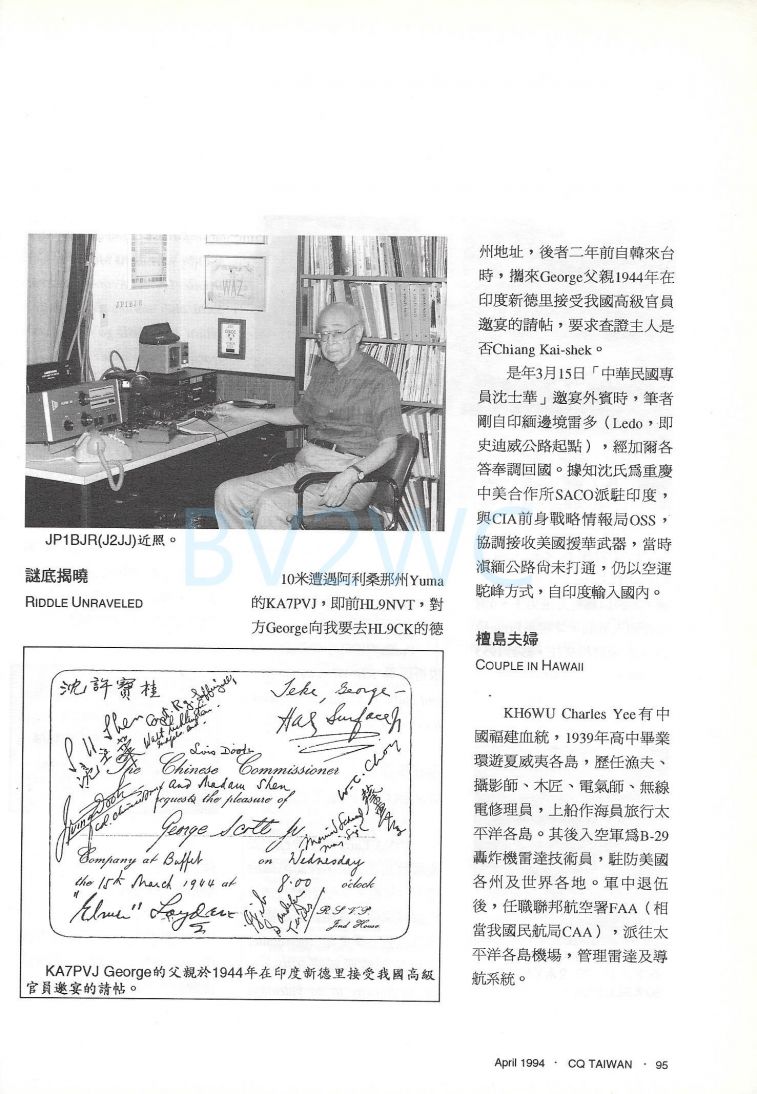 WAZ
JP1BJR
JP1BJR(J2JJ)近照。
謎底揭曉
RIDDLE UNRAVELED
10米遭遇阿利桑那州Yuma
的KA7PVJ，即前HL9NVT，對
方George向我要去HL9CK的德
州地址，後者二年前自韓來台
時，攜來George父親1944年在
印度新德里接受我國高級官員
邀宴的請帖，要求查證主人是
否Chiang Kai-shek。
是年3月15日「中華民國專
員沈士華」邀宴外賓時，筆者
剛自印緬邊境雷多（Ledo，即
史迪威公路起點），經加爾各
答奉調回國。據知沈氏爲重慶
中美合作所SACO派駐印度，
與CIA前身戰略情報局OSS，
協調接收美國援華武器，當時
滇緬公路尚未打通，仍以空運
駝峰方式，自印度輸入國內。
沈許寶桂
S. H. Shen
沈士華
Lois Doody
Teke, George -
Hal Surface Jr
The Chinese Commissioner
and Madam Shen
requests the pleasure of
W-C. Chow
George Scott Jr
Company at Buffet on Wednesday
the 15th March 1944 at 8.00 o'clock
"Elmer"
R.S.V.P.
KA7PVJ George的父親於1944年在印度新德里接受我國高級
官員邀宴的請帖。
檀島夫婦
COUPLE IN HAWAII
KH6WU Charles Yee有中
國福建血統，1939年高中畢業
環遊夏威夷各島，歷任漁夫、
攝影師、木匠、電氣師、無線
電修理員，上船作海員旅行太
平洋各島。其後入空軍爲B-29
轟炸機雷達技術員，駐防美國
各州及世界各地。軍中退伍
後，任職聯邦航空署FAA（相
當我國民航局CAA），派往太
平洋各島機場，管理雷達及導
航系統。
BV2WC
April 1994 · CQ TAIWAN · 95